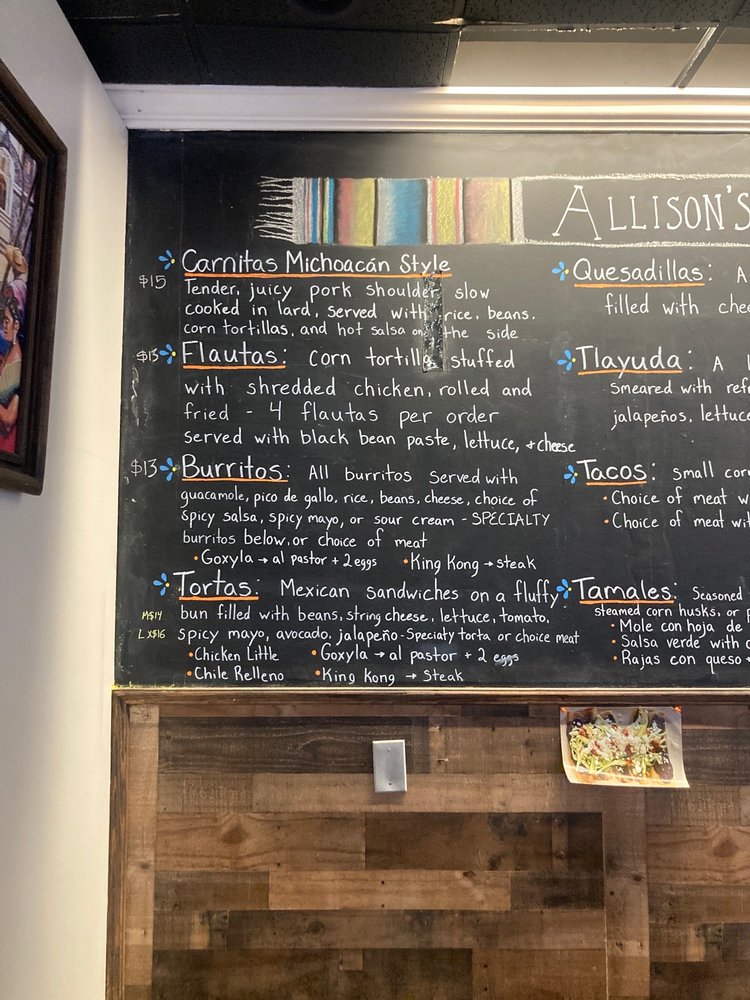 ALLISON'S
Carnitas Michoacán Style
$15
Tender, juicy pork shoulder slow
cooked in lard, served with rice, beans.
corn tortillas, and hot salsa on the side
$13 Flautas: Corn tortilla stuffed
with shredded chicken, rolled and
fried - 4 flautas per order
served with black bean paste, lettuce, + cheese
$13 Burritos: All burritos served with
guacamole, pico de gallo, rice, beans, cheese, choice of
spicy salsa, spicy mayo, or sour cream - SPECIALTY
burritos below, or choice of meat
• Goxyla → al pastor + 2 eggs • King Kong → steak
Tortas: Mexican sandwiches on a fluffy
M$14 bun filled with beans, string cheese, lettuce, tomato.
L X$16 spicy mayo, avocado. jalapeño - Specialty torta or choice meat
• Chicken Little • Goxyla → al pastor + 2 eggs
• Chile Relleno • King Kong → Steak
Quesadillas: A
filled with chee
Tlayuda: A
smeared with ref
jalapeños, lettuc
Tacos: Small cor
• Choice of meat w
• Choice of meat wit
Tamales: Seasoned
steamed corn husks, or
• Mole con hoja de
• Salsa verde with
• Rajas con queso +